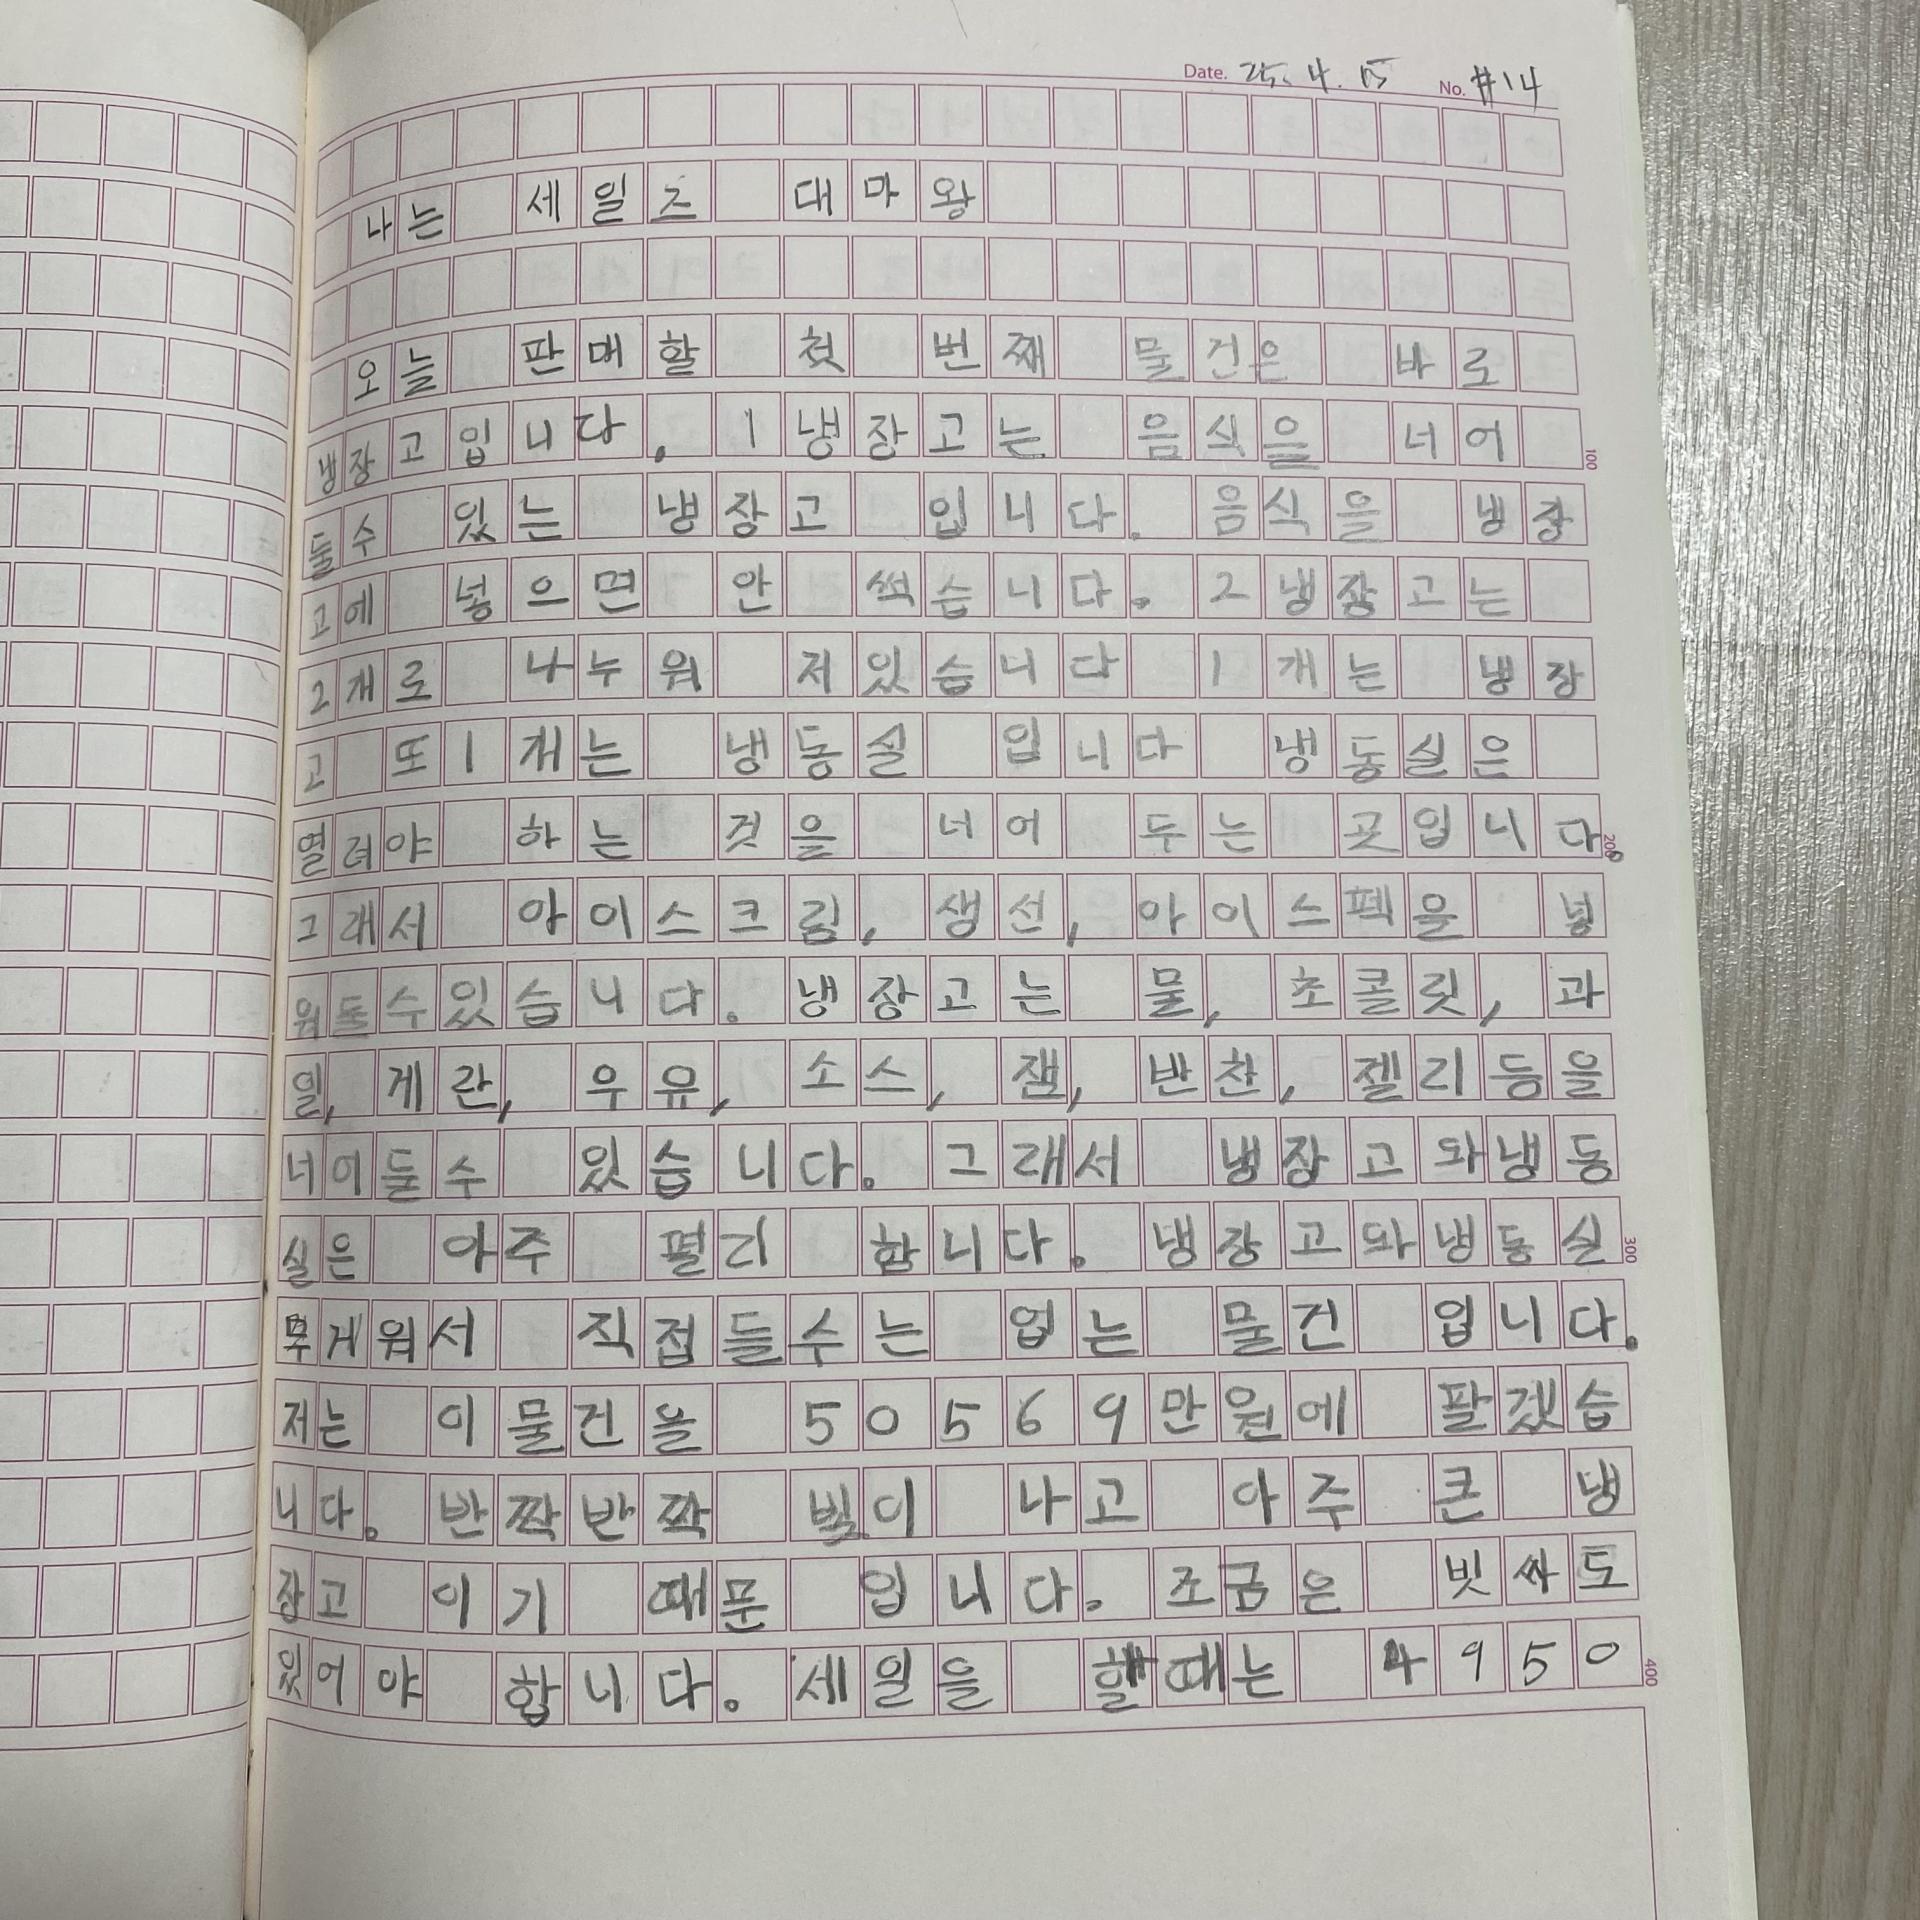 Date. 25. 4. 15 No. #14
나는 세일즈 대마왕
오늘 판매할 첫 번째 물건은 바로
냉장고입니다. 1냉장고는 음식을 너어
둘수 있는 냉장고 입니다. 음식을 냉장
고에 넣으면 안 썩습니다. 2냉장고는
2개로 나누워 저있습니다 1개는 냉장
고 또1개는 냉동실 입니다 냉동실은
얼려야 하는 것을 너어 두는 곳입니다.
그래서 아이스크림, 생선, 아이스팩을 넣
워둘수있습니다. 냉장고는 물, 초콜릿, 과
일, 게란, 우유, 소스, 잼, 반찬, 젤리등을
너어둘수 있습니다. 그래서 냉장고와냉동
실은 아주 펄리 합니다. 냉장고와냉동실
무게워서 직접들수는 업는 물건 입니다.
저는 이물건을 50569만원에 팔겠습
니다. 반짝반짝 빛이 나고 아주 큰 냉
장고 이기 때문 입니다. 조굼은 빗싸도
있어야 합니다. 세일을 할때는 4950
100
200
300
400